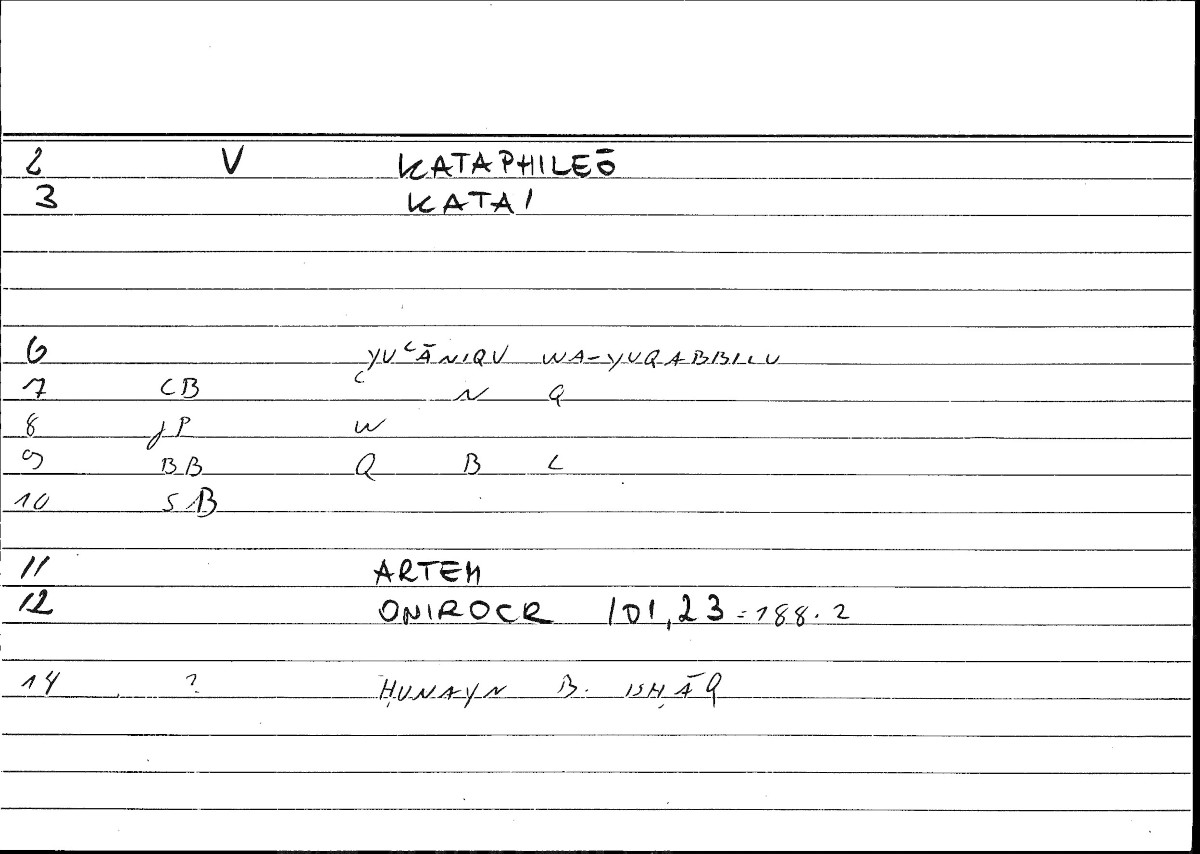 2 V KATAPHILEŌ
3 KATAI
6 YUʿĀNIQU WA-YUQABBILU
7 CB ʿ N Q
8 JP W
9 BB Q B L
10 SB
11 ARTEM
12 ONIROCR 101,23 = 188.2
14 ? ḤUNAYN B. ISḤĀQ